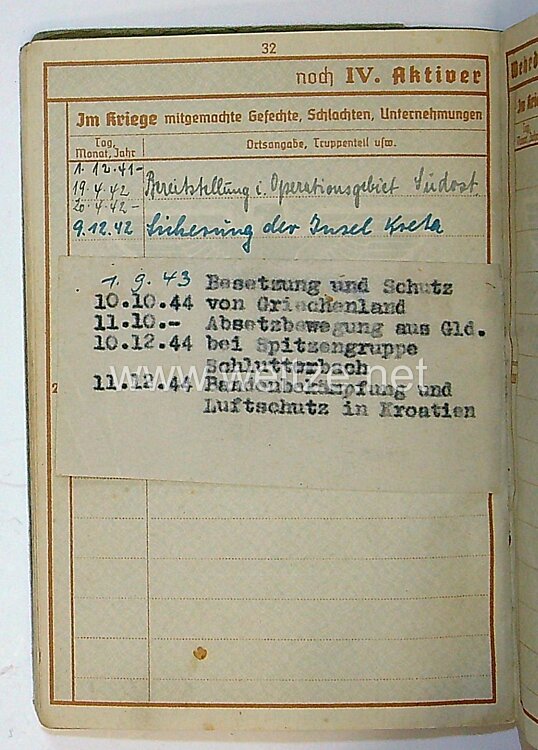 32
noch IV. Aktiver
Im Kriege mitgemachte Gefechte, Schlachten, Unternehmungen
Tag, Monat, Jahr
Ortsangabe, Truppenteil usw.
1.12.41-
19.4.42 Bereitstellung i. Operationsgebiet Südost
20.4.42-
9.12.42 Sicherung der Insel Kreta
1.9.43 Besetzung und Schutz
10.10.44 von Griechenland
11.10.- Absetzbewegung aus Gld.
10.12.44 bei Spitzengruppe
Schlutterbach
11.12.44 Bandenbekämpfung und
Luftschutz in Kroatien
www.weitze.net
2
Wehrd
Im Kri